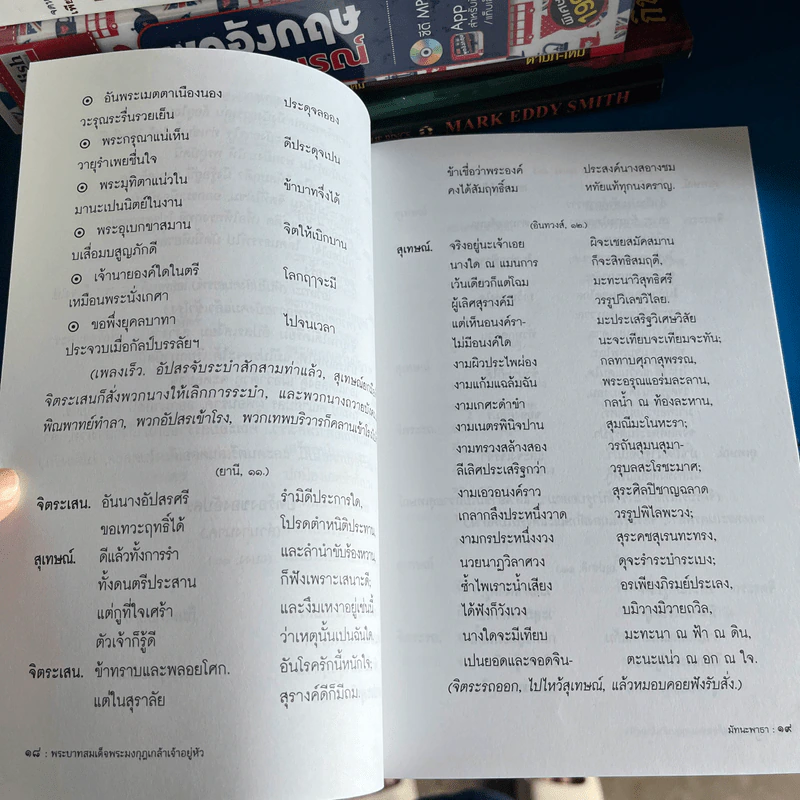 ซีดี MP3
App
MARK EDDY SMITH
๏ อันพระเมตตาเนืองนอง ประดุจลออง
วะรุณระรื่นรวยเย็น
๏ พระกรุณาแน่เห็น ดีประดุจเปน
วายุรำเพยชื่นใจ
๏ พระมุทิตาแน่วใน ข้าบาทจึ่งได้
มานะเปนนิตย์ในงาน
๏ พระอุเบกขาสมาน จิตให้เบิกบาน
บเสื่อมบสูญภักดี
๏ เจ้านายองค์ใดในตรี โลกฤๅจะมี
เหมือนพระนั่งเกศา
๏ ขอพึ่งยุคลบาทา ไปจนเวลา
ประจวบเมื่อกัลป์บรรลัยฯ
(เพลงเร็ว. อัปสรจับระบำสักสามท่าแล้ว, สุเทษณ์
จิตระเสนก็สั่งพวกนางให้เลิกการระบำ, และพวกนางถวายบังคม
พิณพาทย์ทำลา, พวกอัปสรเข้าโรง, พวกเทพบริวารก็คลานเข้าโรง
(ยานี, ๑๑.)
จิตระเสน. อันนางอัปสรศรี รำมิดีประการใด,
ขอเทวะฤทธิ์ได้ โปรดตำหนิติประทาน.
สุเทษณ์. ดีแล้วทั้งการรำ และลำนำขับร้องหวาน,
ทั้งดนตรีประสาน ก็ฟังเพราะเสนาะดี;
แต่กูที่ใจเศร้า และงึมเหงาอยู่เช่นนี้
ตัวเจ้าก็รู้ดี ว่าเหตุนั้นเปนฉันใด.
จิตระเสน. ข้าทราบและพลอยโศก. อันโรครักนี้หนักใจ;
แต่ในสุราลัย สุรางค์ดีก็มีถม.
๑๘ : พระบาทสมเด็จพระมงกุฎเกล้าเจ้าอยู่หัว
ข้าเชื่อว่าพระองค์ ประสงค์นางสอางชม
คงได้สัมฤทธิ์สม หทัยแท้ทุกนงคราญ.
(อินทวงส์, ๑๒.)
สุเทษณ์. จริงอยู่นะเจ้าเอย ผิจะเชยสมัคสมาน
นางใด ณ แมนการ ก็จะสิทธิสมฤดี,
เว้นเดียวก็แต่โฉม มะทะนาวิสุทธิศรี
ผู้เลิศสุรางค์มี วรรูปวิเลขวิไลย.
แต่เห็นอนงค์รา- มะประเสริฐวิเศษวิสัย
ไม่มีอนงค์ใด นะจะเทียบจะเทียมจะทัน;
งามผิวประไพผ่อง กลทาบศุภาสุพรรณ,
งามแก้มแฉล้มฉัน พระอรุณแอร่มละลาน,
งามเกศะดำขำ กลน้ำ ณ ท้องละหาน,
งามเนตรพินิจปาน สุมณีมะโนหะรา;
งามทรวงสล้างสอง วรถันสุมนสุมา-
ลีเลิศประเสริฐกว่า วรุบลสะโรชะมาศ;
งามเอวอนงค์ราว สุระศิลปิชาญฉลาด
เกลากลึงประหนึ่งวาด วรรูปพิไลพะวง;
งามกรประหนึ่งงวง สุระคชสุเรนทะทรง,
นวยนาฏวิลาศวง ดุจะรำระบำระเบง;
ซ้ำไพเราะน้ำเสียง อรเพียงภิรมย์ประเลง,
ได้ฟังก็วังเวง บมิวางมิวายถวิล,
นางใดจะมีเทียบ มะทะนา ณ ฟ้า ณ ดิน,
เปนยอดและจอดจิน- ตะนะแน่ว ณ อก ณ ใจ.
(จิตระรถออก, ไปไหว้สุเทษณ์, แล้วหมอบคอยฟังรับสั่ง.)
มัทนะพาธา : ๑๙